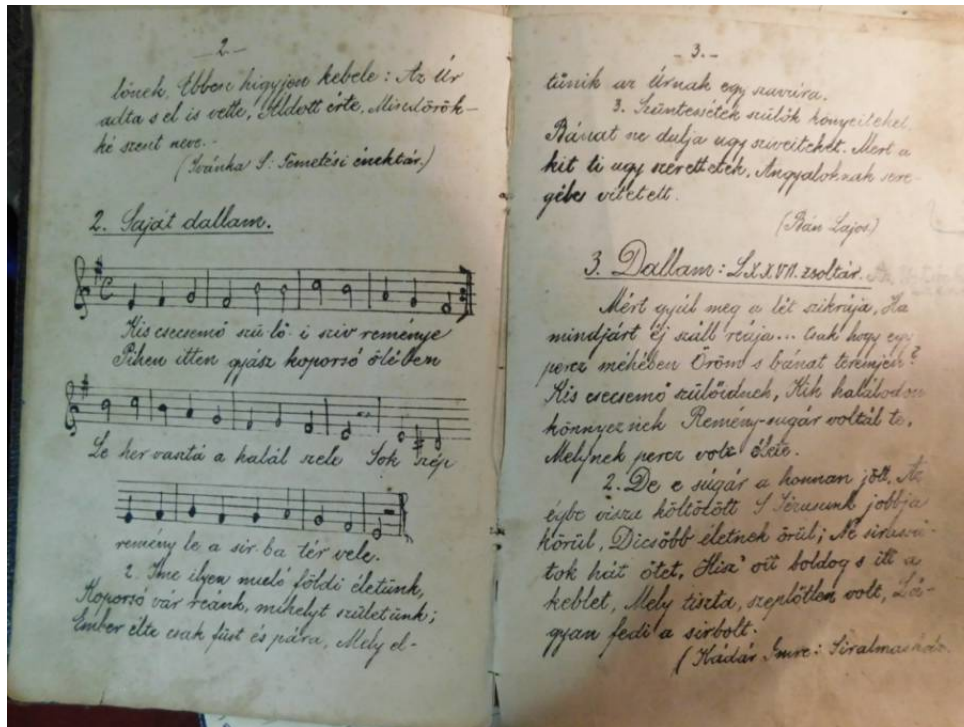 – 2. –
lönek, Ebben higyjen kebele: Az Úr
adta s el is vette, Áldott érte, Mindörök-
ké szent neve. –
(Ivánka S: Temetési énektár.)
2. Saját dallam.
Kis csecsemő szü-lő-i sziv reménye
Pihen itten gyász koporsó ölében
Le her vasztá a halál szele Sok szép
remény le a sir-ba tér vele.
2. Ime ilyen muló földi életünk,
Koporsó vár reánk, mihelyt születünk;
Ember élte csak füst és pára, Mely el-
– 3. –
tűnik az Úrnak egy szavára.
3. Szüntessétek szülők könyeiteket,
Bánat ne dulja ugy sziveiteket. Mert a
kit ti ugy szerettetek, Angyaloknak sere-
gébe vitetett.
(Bán Lajos)
3. Dallam: LXXVII. zsoltár.
Mért gyúl meg a lét szikrája, Ha
mindjárt éj száll reája... Csak hogy egy
percz méhében Öröm s bánat teremjen?
Kis csecsemő szülőidnek, Kik halálodon
könnyeznek Remény-sugár voltál te,
Melynek percz volt élete.
2. De e súgár a honnan jött, Az
égbe vissza költözött S Jézusunk jobbja
körül, Dicsőbb életnek örül; Ne sirassá-
tok hát őtet, Hisz' ott boldog s itt a
keblet, Mely tiszta, szeplőtlen volt, Lá-
gyan fedi a sirbolt.
(Kádár Imre: